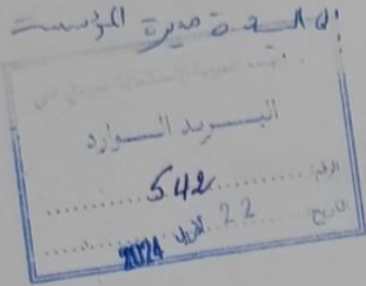 إلى السيدة مديرة المؤسسة
البريد الوارد
الرقم: 542
التاريخ: 22 أفريل 2024